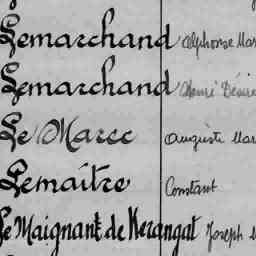 Lemarchand Alphonse Mar
Lemarchand Henri Désiré
Le Marec Auguste Mar
Lemaître Constant
Le Maignant de Kerangat Joseph